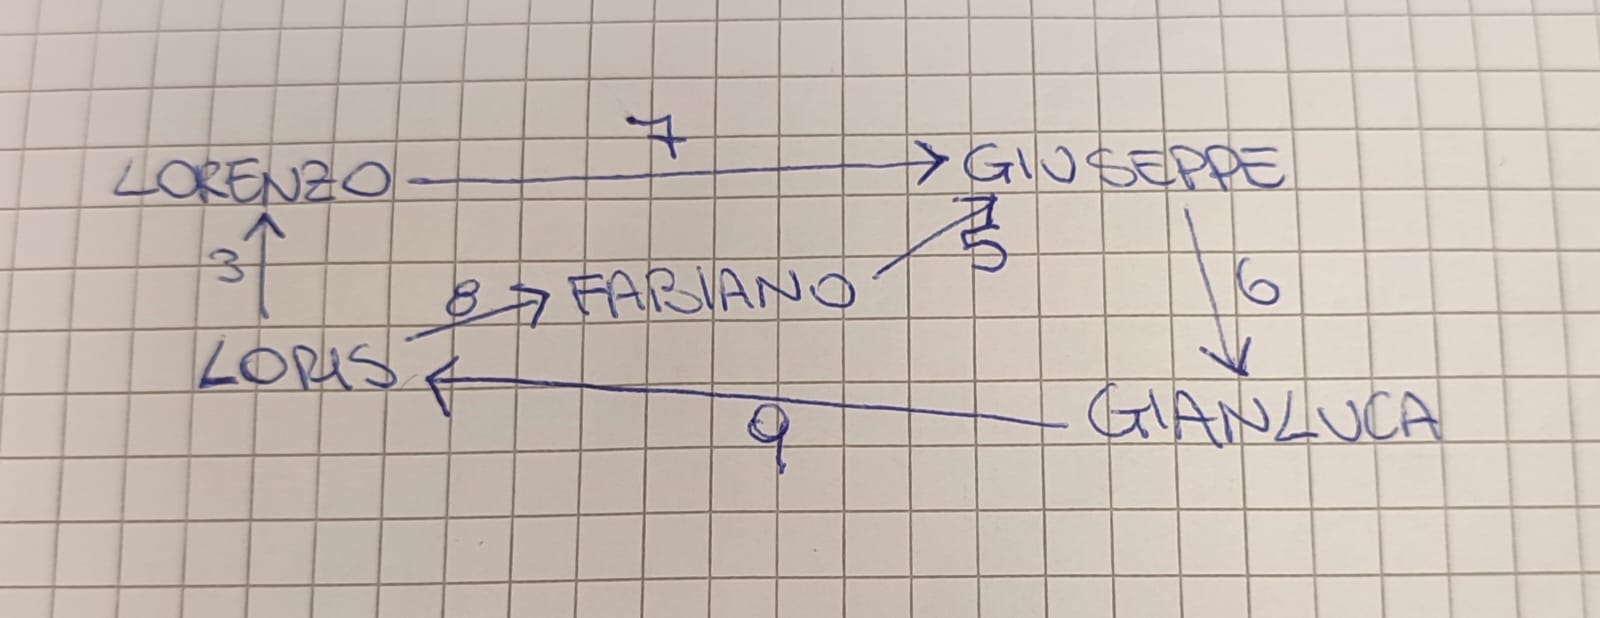 7
LORENZO GIUSEPPE
3 8 FABIANO 5 6
LORIS GIANLUCA
9